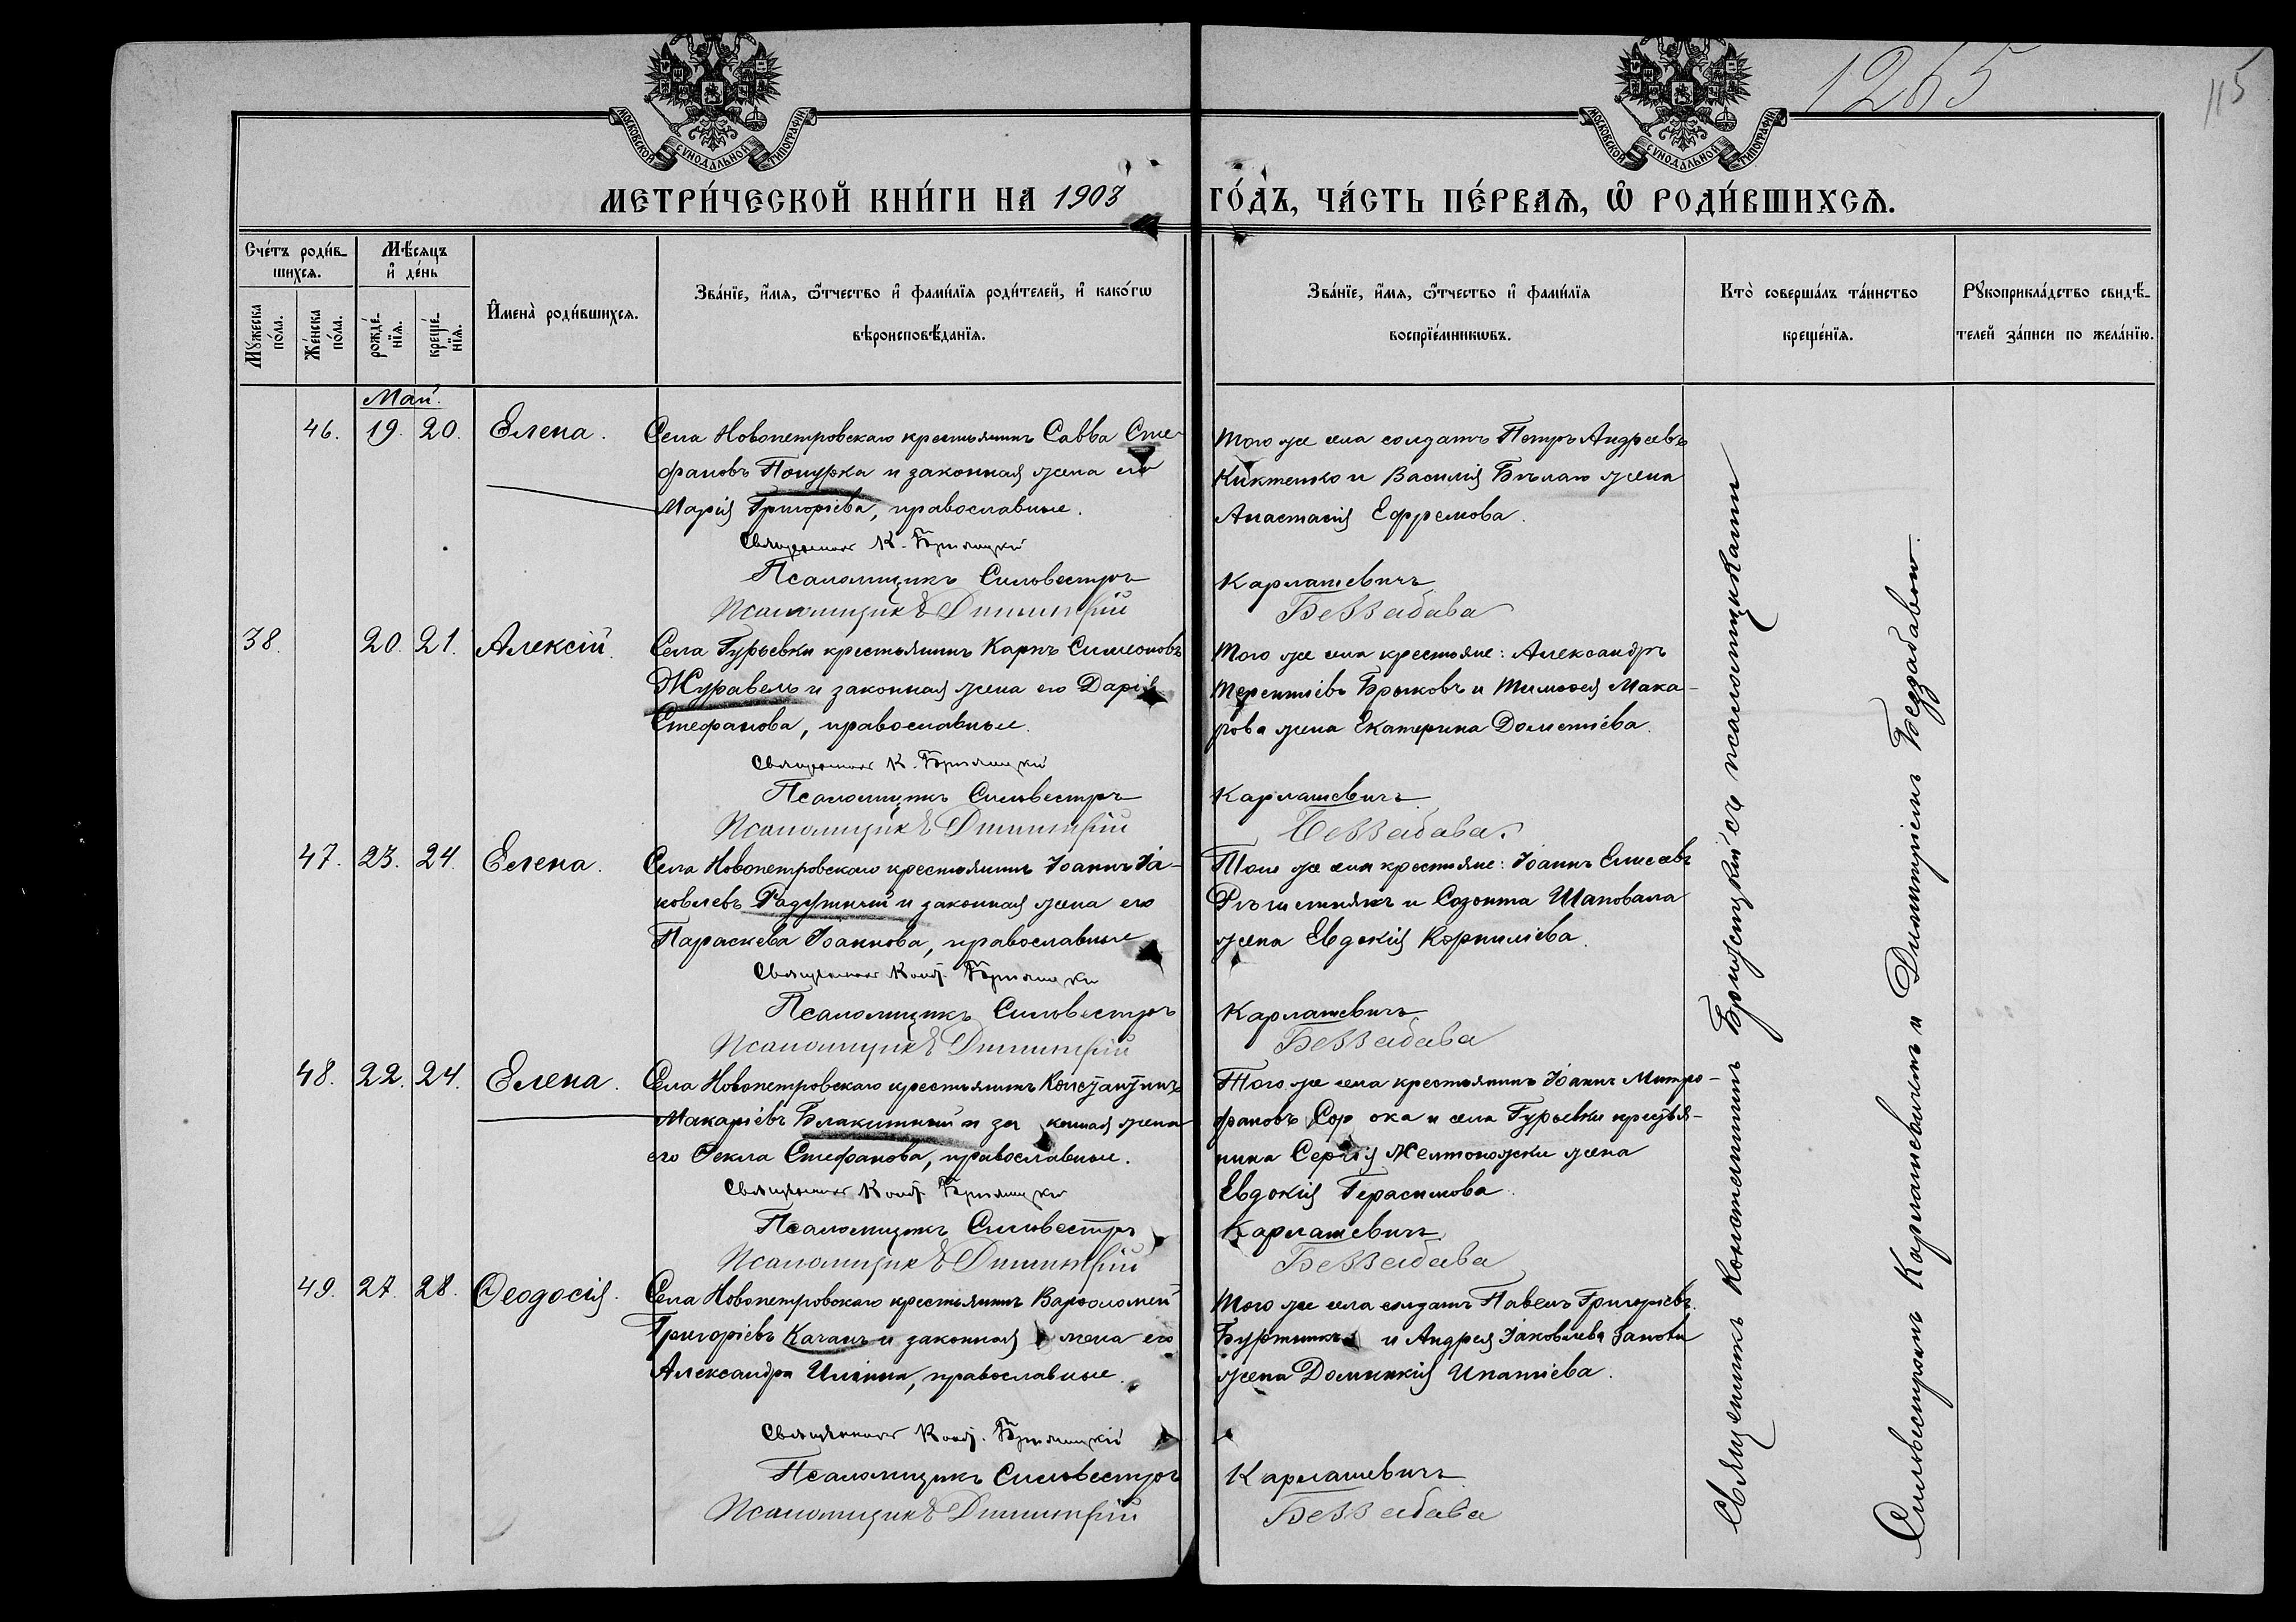 1265
115
МОСКОВСКОЙ СУНОДАЛЬНОЙ ТИПОГРАФІИ
МОСКОВСКОЙ СУНОДАЛЬНОЙ ТИПОГРАФІИ
МЕТРИ́ЧЕСКОЙ КНИ́ГИ НА 1903 ГО́ДЪ, ЧА́СТЬ ПЕ́РВАѦ, Ѡ РОДИ́ВШИХСѦ.
Сче́тъ роди́в-
шихсѧ.
Мѣсѧцъ
и҆ де́нь
Мꙋжеска
по́ла.
Же́нска
по́ла.
рожде́-
нїѧ.
креще́-
нїѧ.
И҆мена̀ роди́вшихсѧ.
Зва́нїе, и҆́мѧ, ѻ҆́тчество и҆ фами́лїѧ роди́телей, и҆ како́гѡ
вѣроисповѣ́данїѧ.
Зва́нїе, и҆́мѧ, ѻ҆́тчество и҆ фами́лїѧ
воспрїе́мникѡвъ.
Кто̀ соверша́лъ та́инство
креще́нїѧ.
Рꙋкоприкла́дство свидѣ́-
телей за́писи по жела́нїю.
Май.
46. 19. 20. Елена.
Села Новопетровскаго крестьянинъ Савва Сте-
фановъ Попурка и законная жена его
Марія Григоріева, православные.
Священникъ К. Бржизицкій
Псаломщикъ Сильвестръ
Псаломщикъ Димитрій
Того же села солдатъ Петръ Андреевъ
Киктенко и Василія Бѣлаго жена
Анастасія Ефремова.
Карлашевичъ
Беззабава
38. 20. 21. Алексій.
Села Гурьевки крестьянинъ Карпъ Симеоновъ
Журавель и законная жена его Дарія
Стефанова, православные.
Священникъ К.
Псаломщикъ Сильвестръ
Псаломщикъ Димитрій
Того же села крестьяне: Александръ
Терентіевъ Брыковъ и Тимофея Мака-
рова жена Екатерина Дометіева.
Карлашевичъ
Беззабава.
47. 23. 24. Елена.
Села Новопетровскаго крестьянинъ Іоаннъ Іа-
ковлевъ Радутный и законная жена его
Параскева Іоаннова, православные
Священникъ Конст.
Псаломщикъ Сильвестръ
Псаломщикъ Димитрій
Того же села крестьяне: Іоаннъ Елисеевъ
и Созонта Шаповала
жена Евдокія Корниліева.
Карлашевичъ
Беззабава
48. 22. 24. Елена.
Села Новопетровскаго крестьянинъ Константинъ
Макаріевъ Блакитный и законная жена
его Ѳекла Стефанова, православные.
Священникъ Конст.
Псаломщикъ Сильвестръ
Псаломщикъ Димитрій
Того же села крестьянинъ Іоаннъ Митро-
фановъ Сорока и села Гурьевки крестья-
нина Сергія Желтоножски жена
Евдокія Герасимова.
Карлашевичъ
Беззабава
49. 27. 28. Ѳеодосія.
Села Новопетровскаго крестьянинъ Варѳоломей
Григоріевъ Качанъ и законная жена его
Александра Иліина, православные.
Священникъ Конст.
Псаломщикъ Сильвестръ
Псаломщикъ Димитрій
Того же села солдатъ Павелъ Григоріевъ
Буртникъ и Андрея Іаковлева
жена Домникія Ипатіева.
Карлашевичъ
Беззабава
Священникъ Константинъ съ псаломщиками
Сильвестромъ Карлашевичемъ и Димитріемъ Беззабавою.